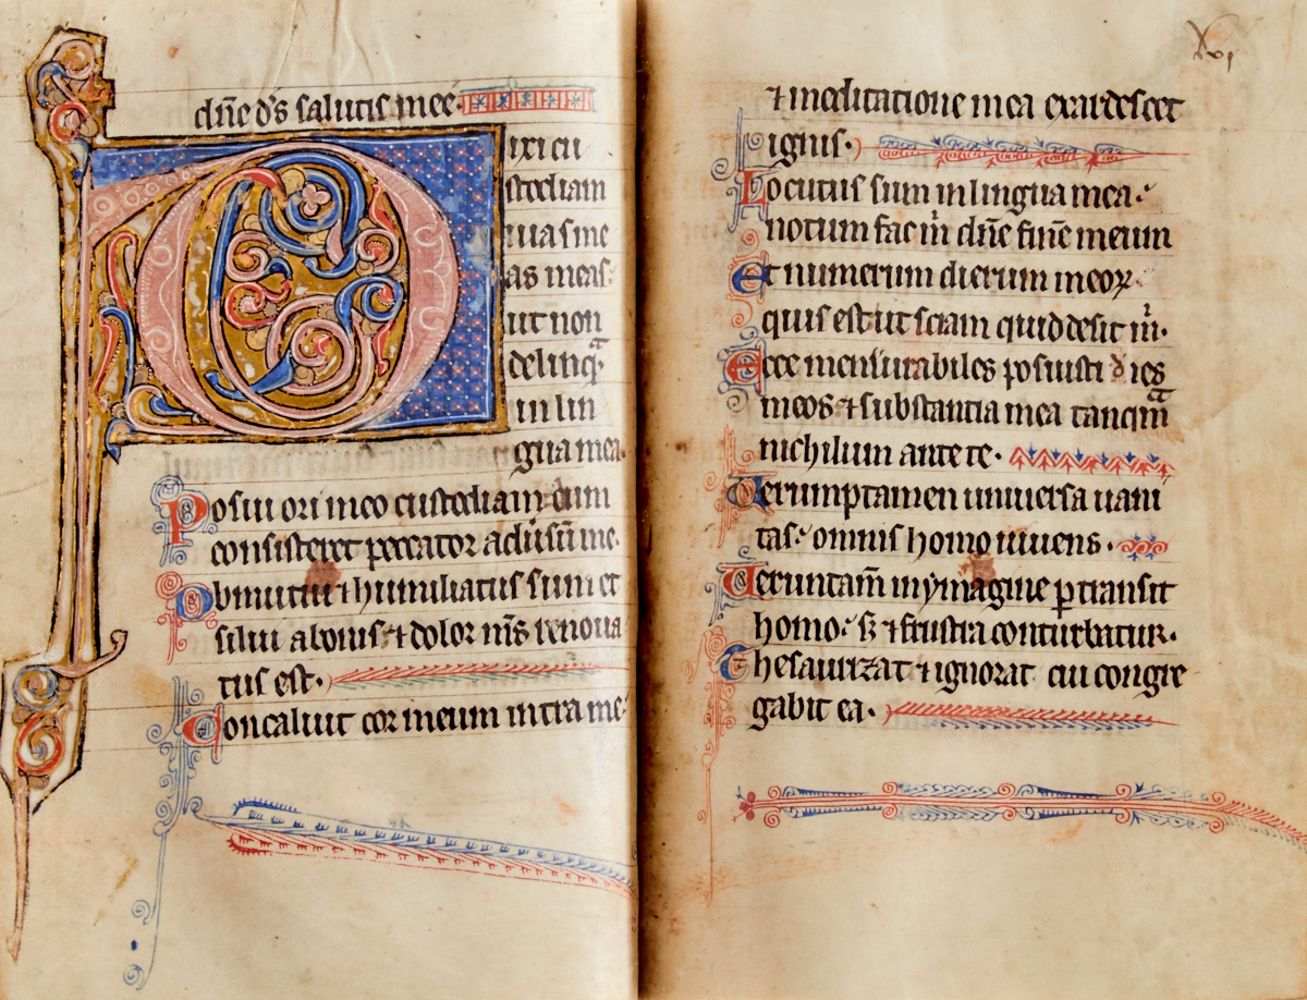 dn̄e ds̄ salutis mee·
Dixi cu
stodiam
uias me
as meas·
ut non
delinqᵃ
in lin
gua mea·
Posui ori meo custodiam dum
consisteret peccator adūsū me·
Obmutui ⁊ humiliatus sum et
silui abonis ⁊ dolor ms̄ renoua
tus est·
Concaluit cor meum intra me·
xvi
⁊ in meditatione mea exardescet
ignis·
Locutus sum in lingua mea·
notum fac m̄ dn̄e finē meum
Et numerum dierum meoꝝ
quis est ut sciam quid desit m̄·
Ecce mensurabiles posuisti dies
meos ⁊ substantia mea tanqᵃm
nichilum ante te·
Uerumptamen uniuersa uani
tas· omnis homo uiuens·
Ueruntam̄ in ymagine ꝑtransit
homo· sꝫ ⁊ frustra conturbatur·
Thesaurizat ⁊ ignorat cui congre
gabit ea·